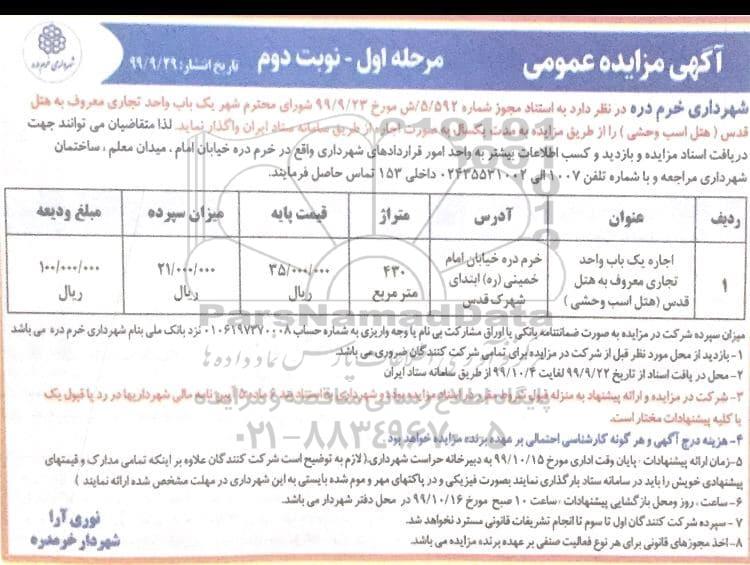 آگهی مزایده عمومی
مرحله اول - نوبت دوم
تاریخ انتشار: ۹۹/۹/۲۹
شهرداری خرم دره
شهرداری خرم دره در نظر دارد به استناد مجوز شماره ۵/۵۹۲/ش مورخ ۹۹/۹/۲۳ شورای محترم شهر یک باب واحد تجاری معروف به هتل
قدس ( هتل اسب وحشی ) را از طریق مزایده به مدت یکسال به صورت اجاره از طریق سامانه ستاد ایران واگذار نماید. لذا متقاضیان می توانند جهت
دریافت اسناد مزایده و بازدید و کسب اطلاعات بیشتر به واحد امور قراردادهای شهرداری واقع در خرم دره خیابان امام ، میدان معلم ، ساختمان
شهرداری مراجعه و با شماره تلفن ۱۰۰۷ الی ۰۲۴۳۵۵۳۱۰۰۲ داخلی ۱۵۳ تماس حاصل فرمایند.
ردیف عنوان آدرس متراژ قیمت پایه میزان سپرده مبلغ ودیعه
۱ اجاره یک باب واحد تجاری معروف به هتل قدس (هتل اسب وحشی ) خرم دره خیابان امام خمینی (ره) ابتدای شهرک قدس ۴۳۰ متر مربع ۳۵/۰۰۰/۰۰۰ ریال ۲۱/۰۰۰/۰۰۰ ریال ۱۰۰/۰۰۰/۰۰۰ ریال
ParsNamadData
میزان سپرده شرکت در مزایده به صورت ضمانتنامه بانکی یا اوراق مشارکت بی نام یا وجه واریزی به شماره حساب ۰۱۰۶۱۹۷۳۷۰۰۰۸ نزد بانک ملی بنام شهرداری خرم دره می باشد
۱- بازدید از محل مورد نظر قبل از شرکت در مزایده برای تمامی شرکت کنندگان ضروری می باشد.
۲- محل در یافت اسناد از تاریخ ۹۹/۹/۲۲ لغایت ۹۹/۱۰/۴ از طریق سامانه ستاد ایران
۳- شرکت در مزایده و ارائه پیشنهاد به منزله قبول شروط مقرر در اسناد مزایده بوده و شهرداری به استناد بند ۶ ماده ۵ آیین نامه مالی شهرداریها در رد یا قبول یک
یا کلیه پیشنهادات مختار است.
پایگاه اطلاع رسانی مناقصه و مزایده
۰۲۱-۸۸۳۴۹۶۷۰-۵
۴- هزینه درج آگهی و هر گونه کارشناسی احتمالی بر عهده برنده مزایده خواهد بود
۵-زمان ارائه پیشنهادات : پایان وقت اداری مورخ ۹۹/۱۰/۱۵ به دبیرخانه حراست شهرداری.( لازم به توضیح است شرکت کنندگان علاوه بر اینکه تمامی مدارک و قیمتهای
پیشنهادی خویش را باید در سامانه ستاد بارگذاری نمایند بصورت فیزیکی و در پاکتهای مهر و موم شده بایستی به این شهرداری در مهلت مشخص شده ارائه نمایند )
۶- ساعت ، روز و محل بازگشایی پیشنهادات : ساعت ۱۰ صبح مورخ ۹۹/۱۰/۱۶ در محل دفتر شهردار می باشد.
۷ - سپرده شرکت کنندگان اول تا سوم تا انجام تشریفات قانونی مسترد نخواهد شد.
۸- اخذ مجوزهای قانونی برای هر نوع فعالیت صنفی بر عهده برنده مزایده می باشد.
نوری آرا
شهردار خرمدره